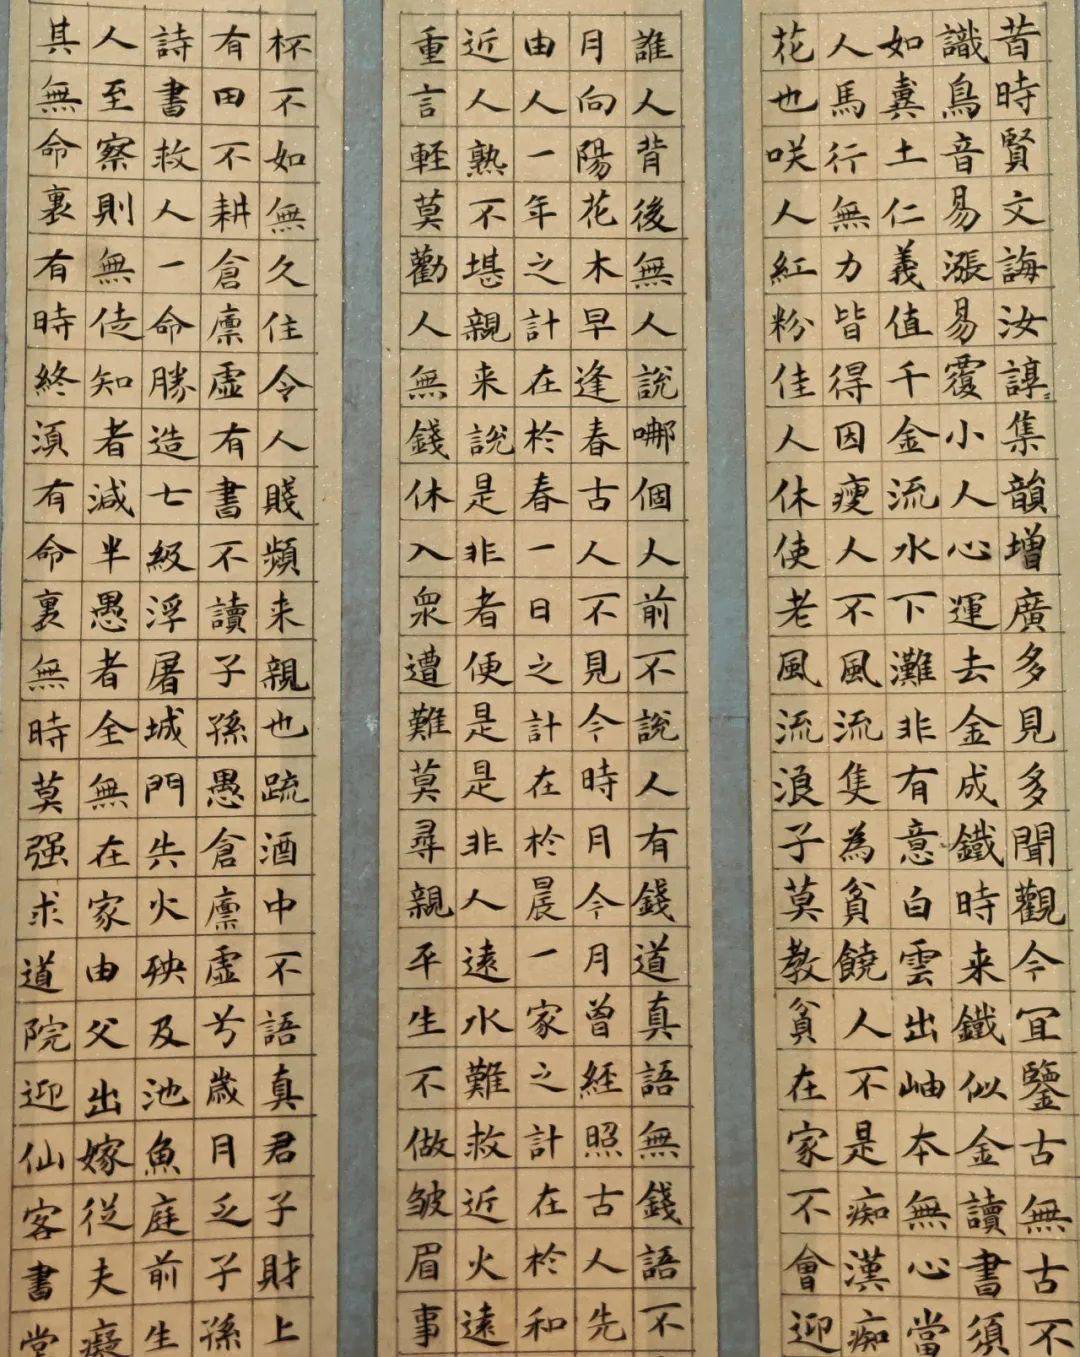 昔時賢文誨汝諄集韻增廣多見多聞觀今冝鑒古無古不
識鳥音易漲易覆小人心運去金成鐵時来鐵似金讀書須
如糞土仁義值千金流水下灘非有意白雲出岫本無心當
人馬行無力皆得因瘦人不風流隻為貧饒人不是痴漢痴
花也咲人紅粉佳人休使老風流浪子莫教貧在家不會迎
誰人背後無人說哪個人前不說人有錢道真語無錢語不
月向陽花木早逢春古人不見今時月今月曾經照古人先
由人一年之計在於春一日之計在於晨一家之計在於和
近人熟不堪親来說是非者便是是非人遠水難救近火遠
重言輕莫勸人無錢休入衆遭難莫尋親平生不做皺眉事
杯不如無久住令人賤頻来親也疏酒中不語真君子財上
有田不耕倉廪虛有書不讀子孫愚倉廪虛兮歲月乏子孫
詩書救人一命勝造七級浮屠城門失火殃及池魚庭前生
人至察則無徒知者減半愚者全無在家由父出嫁從夫癡
其無命裏有時終須有命裏無時莫强求道院迎仙客書堂